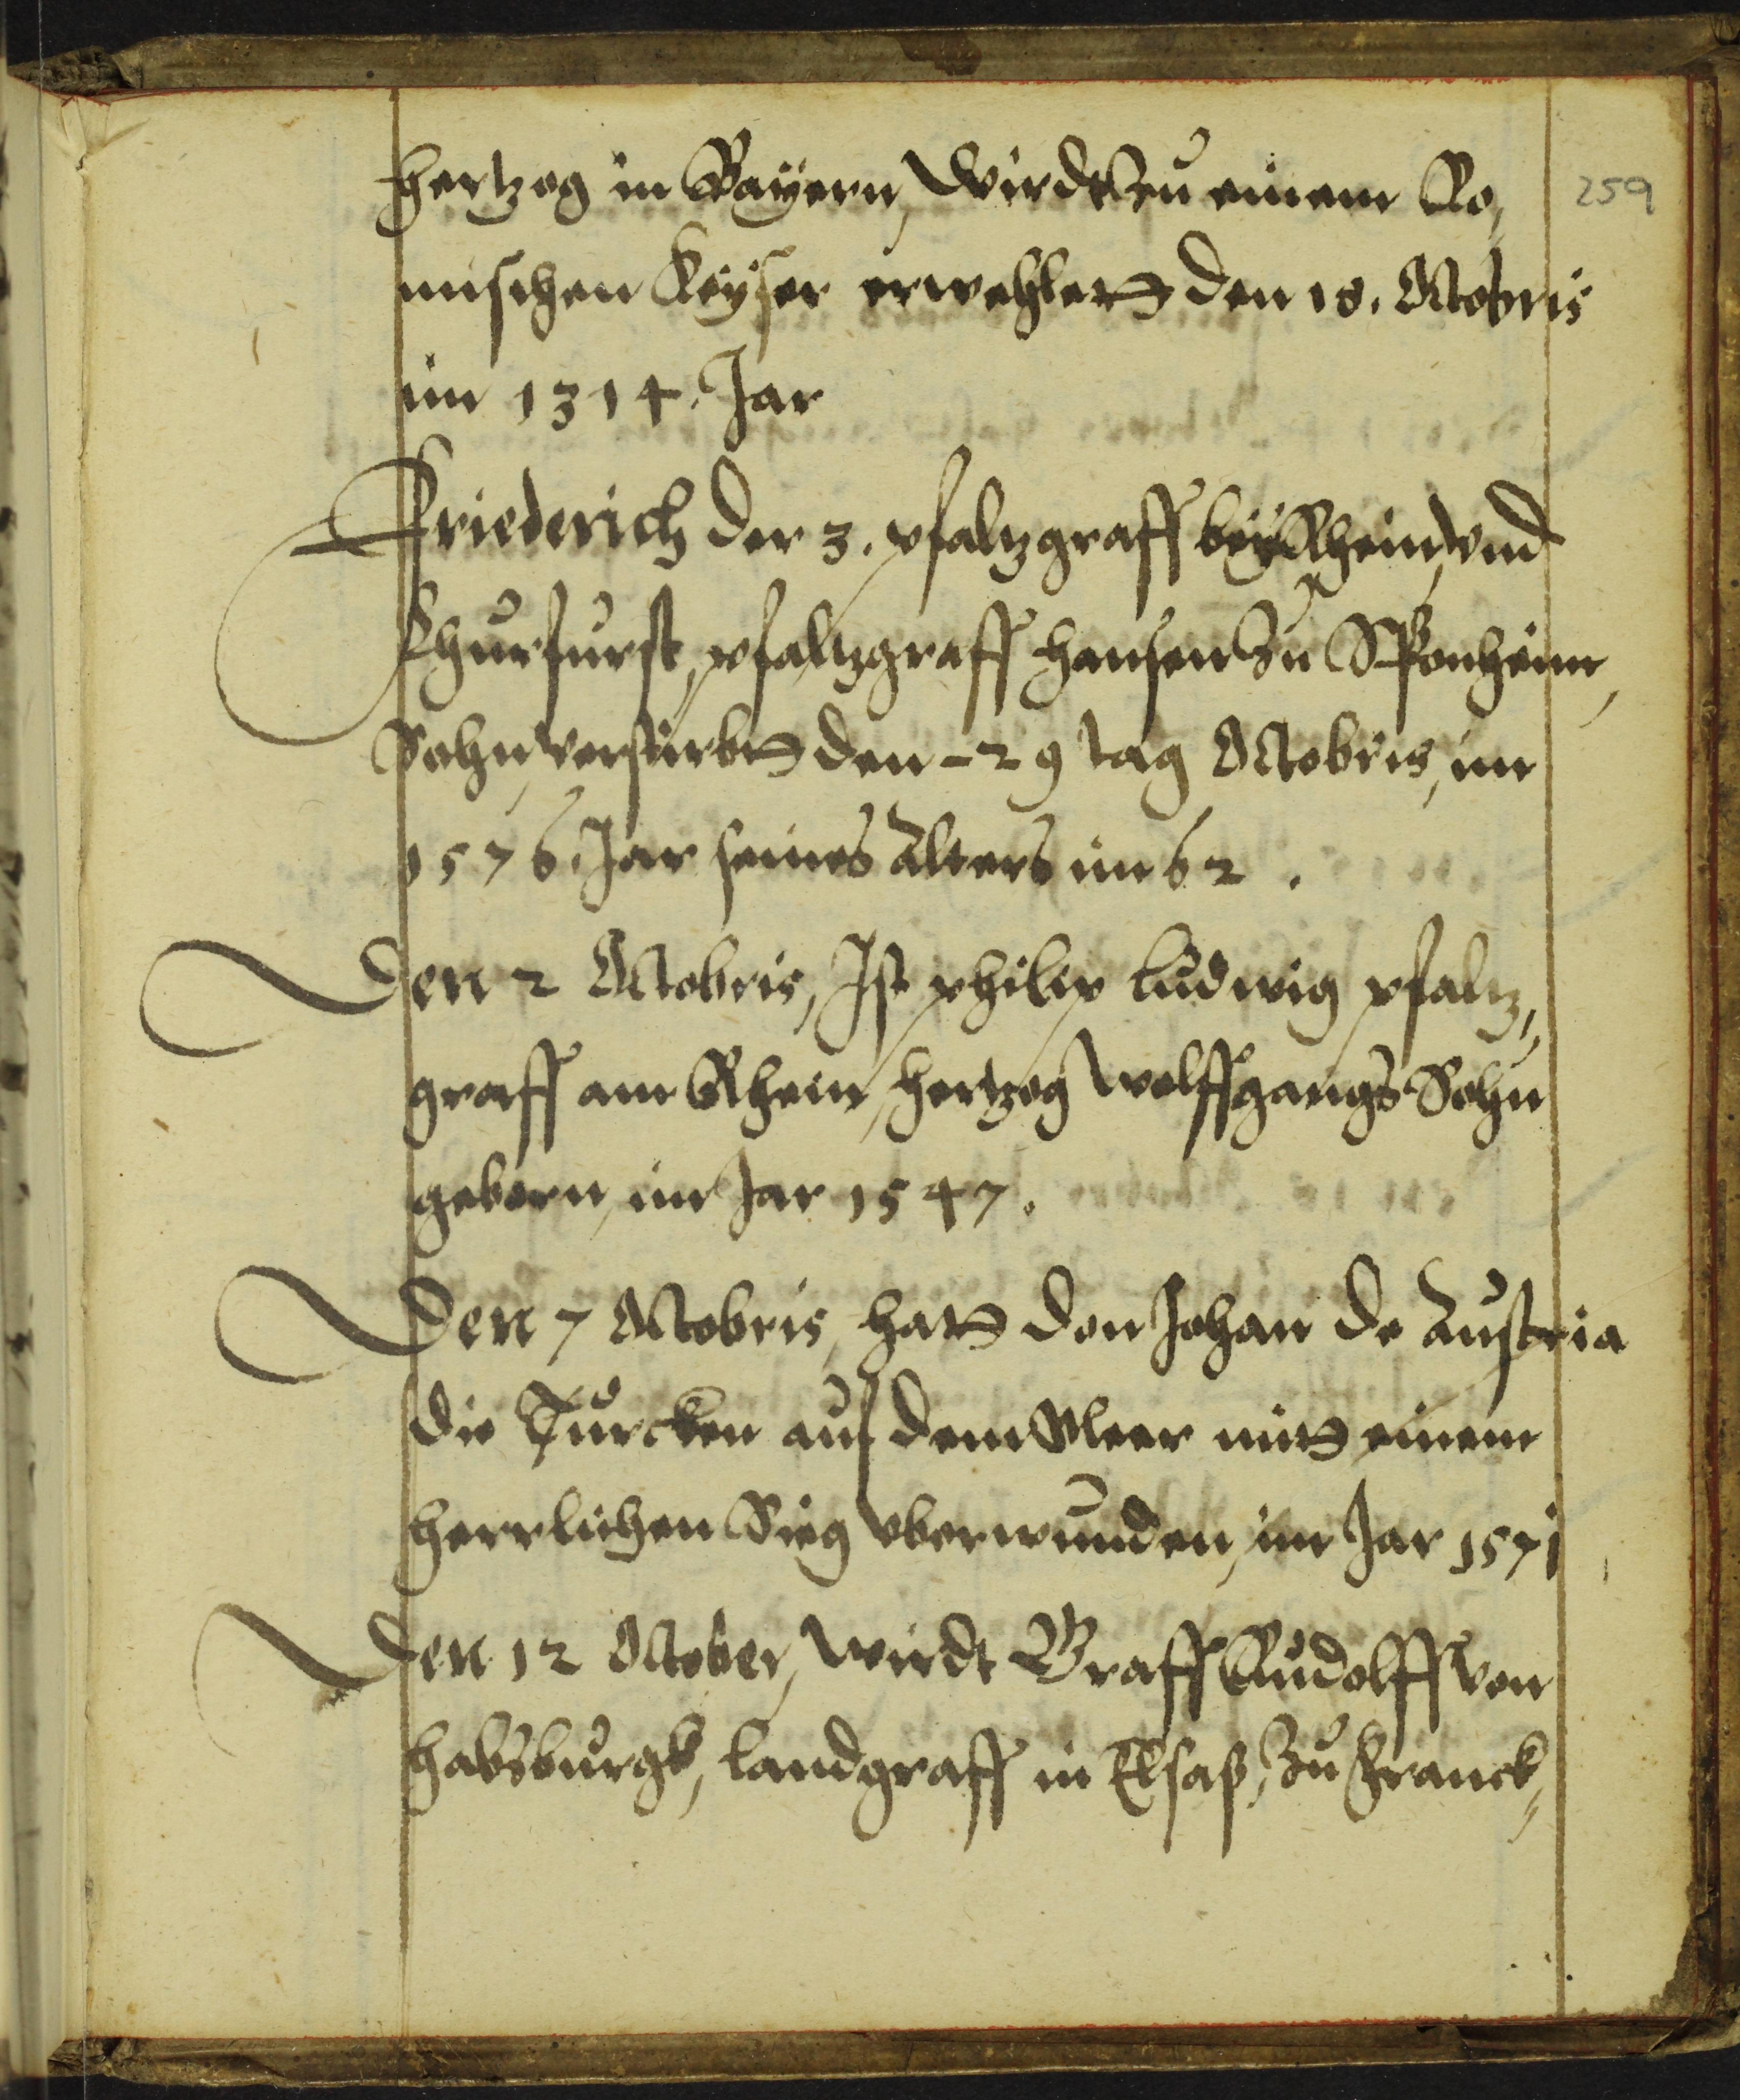 259
Hertzog in Bayern, wirdt zu einem Ro,
mischen Keyser erwehlett den 18. Octobris
im 1314. Jar
Friederich der 3. pfaltzgraff bey Rhein, vnd
Churfurst, pfaltzgraff Hansen zu Sponheim,
Sohn, verstirbtt den - 29 tag Octobris, im
1576. Jar seines Alters im 62.
Den 2 Octobris, Ist philip Ludwig pfaltz,
graff am Rhein, Hertzog Wolffgangs Sohn
geborn, im Jar 1547.
Den 7 Octobris, hatt Don Johan de Austria
die Türcken auf dem Meer mitt einem
herrlichen Sieg vberwunden, im Jar 1571
Den 12 October, wirdt Graff Rudolff von
Habsburgk, Landgraff in Elsaß, zu Franck,